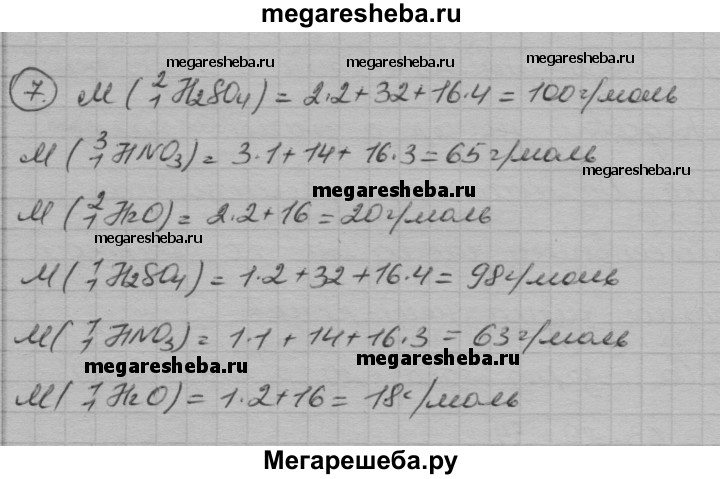 megaresheba.ru
megaresheba.ru megaresheba.ru megaresheba.ru
7. M(²₁H₂SO₄) = 2·2+32+16·4 = 100г/моль
M(³₁HNO₃) = 3·1+14+16·3=65г/моль
megaresheba.ru
megaresheba.ru
M(²₁H₂O) = 2·2+16=20г/моль
megaresheba.ru
M(¹₁H₂SO₄) = 1·2+32+16·4= 98г/моль
M(¹₁HNO₃) = 1·1+14+16·3=63г/моль
megaresheba.ru megaresheba.ru
M(¹₁H₂O) = 1·2+16= 18г/моль
megaresheba.ru
Мегарешеба.ру